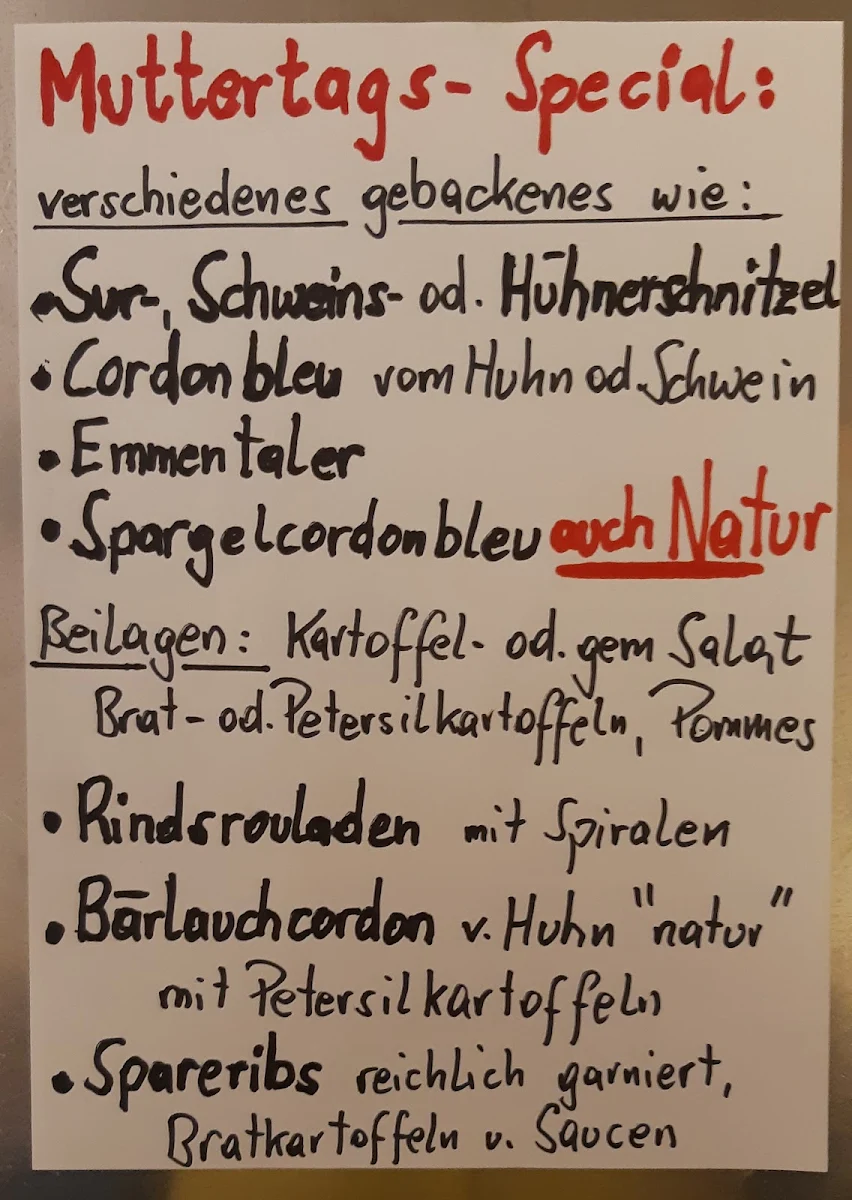 Muttertags- Special:
verschiedenes gebackenes wie:
• Sur-, Schweins- od. Hühnerschnitzel
• Cordon bleu vom Huhn od. Schwein
• Emmentaler
• Spargelcordonbleu auch Natur
Beilagen: Kartoffel- od. gem Salat
Brat- od. Petersilkartoffeln, Pommes
• Rindsrouladen mit Spiralen
• Bärlauchcordon v. Huhn "natur"
mit Petersilkartoffeln
• Spareribs reichlich garniert,
Bratkartoffeln u. Saucen